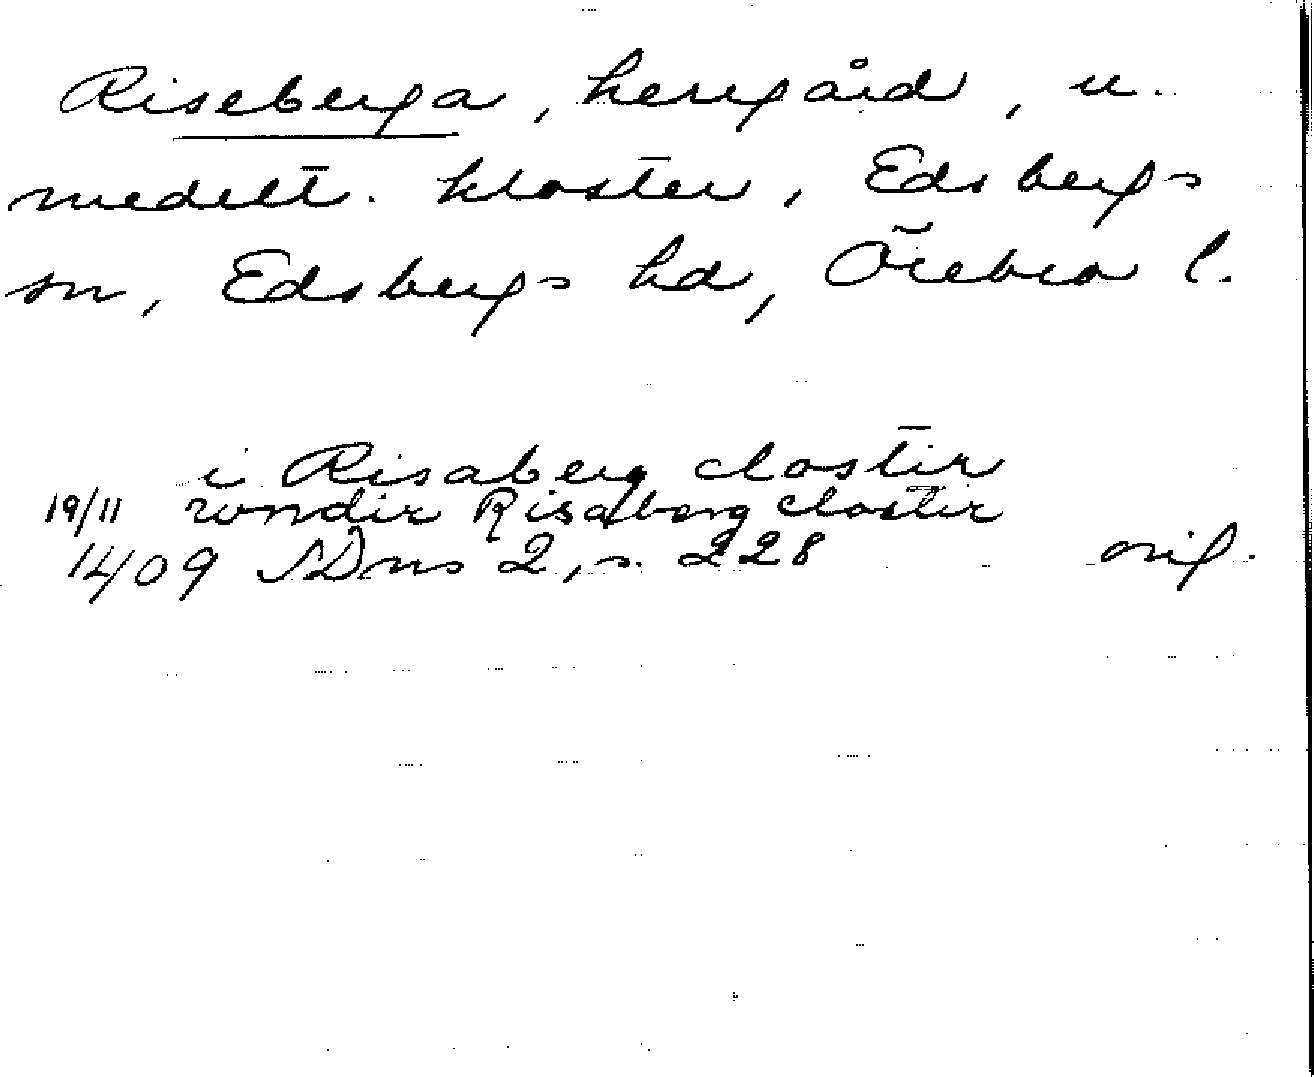 Riseberga, herrgård, u.
medelt. kloster, Edsbergs
sn, Edsbergs hd, Örebro l.
i Risaberg closter
19/11 wndir Risaberg clostir
1409 SDns 2, s. 228 orig.